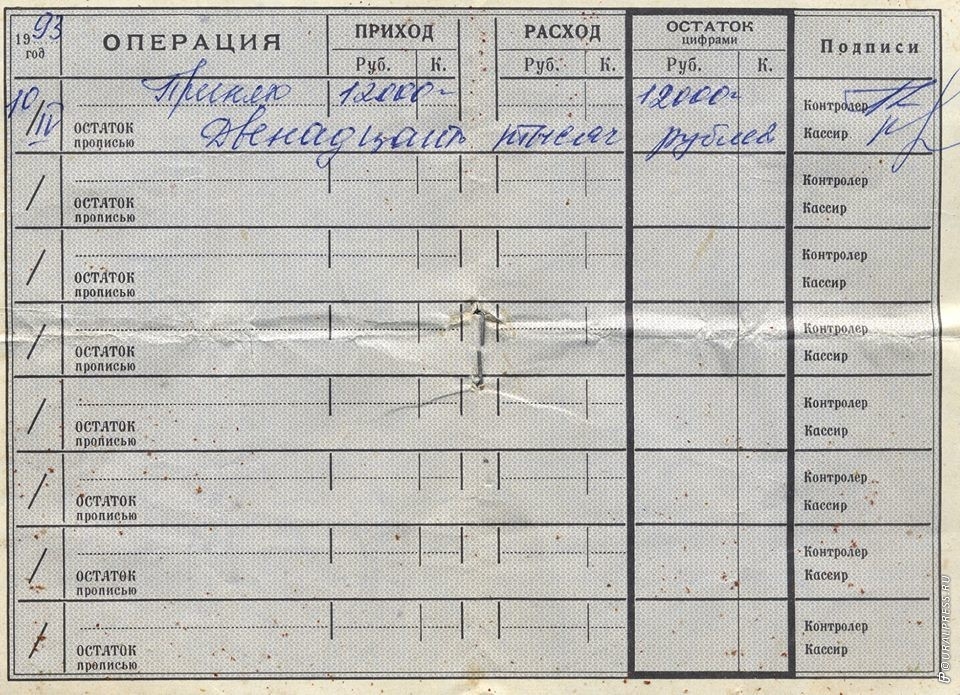 1993 год ОПЕРАЦИЯ ПРИХОД РАСХОД ОСТАТОК цифрами Подписи
Руб. К. Руб. К. Руб. К.
10/IV Принято 12000- 12000- Контролер
ОСТАТОК прописью Двенадцать тысяч рублей Кассир
/ Контролер
ОСТАТОК прописью Кассир
/ Контролер
ОСТАТОК прописью Кассир
/ Контролер
ОСТАТОК прописью Кассир
/ Контролер
ОСТАТОК прописью Кассир
/ Контролер
ОСТАТОК прописью Кассир
/ Контролер
ОСТАТОК прописью Кассир
/ Контролер
ОСТАТОК прописью Кассир
©URALPRESS.RU